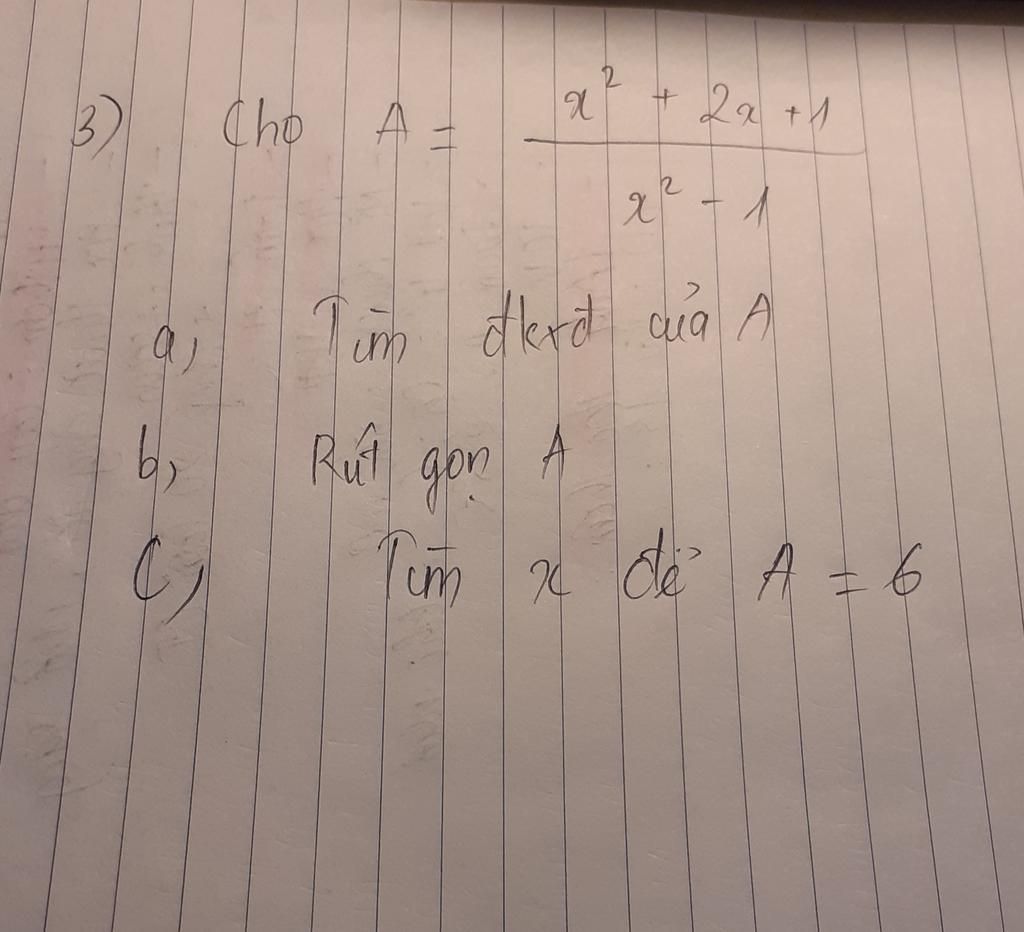 3) Cho A = \frac{x² + 2x + 1}{x² - 1}
a, Tìm đkxđ của A
b, Rút gọn A
C, Tìm x để A = 6